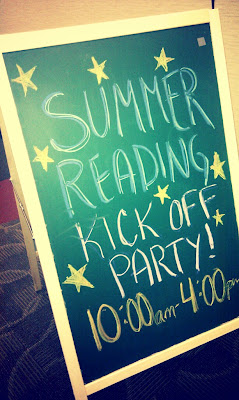 SUMMER
READING
KICK OFF
PARTY!
10:00am-4:00pm